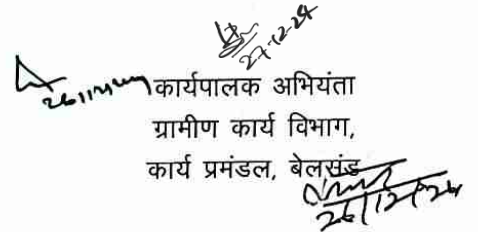 27-12-24
कार्यपालक अभियंता
ग्रामीण कार्य विभाग,
कार्य प्रमंडल, बेलसंड
26/12/24